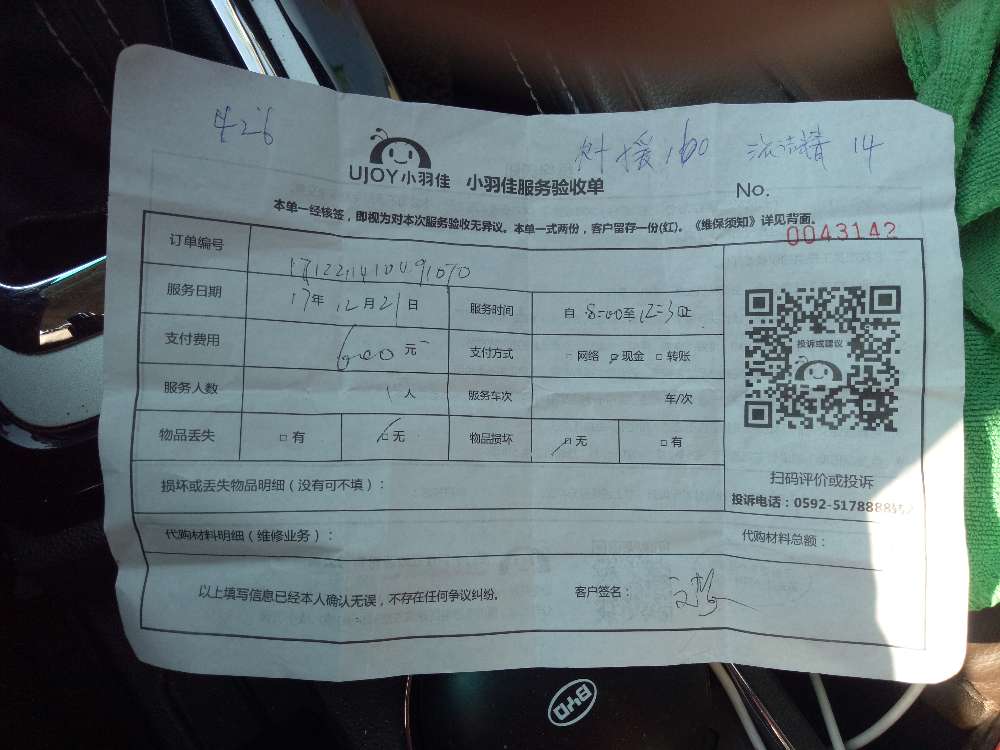 426 外援160 洗洁精 14
UJOY小羽佳 小羽佳服务验收单 No.
本单一经核签，即视为对本次服务验收无异议。本单一式两份，客户留存一份(红)。《维保须知》详见背面。
0043142
订单编号
服务日期 17年 12月 21日 服务时间 自 8:00至12:30止
支付费用 600元 支付方式 网络 现金 转账
服务人数 1人 服务车次 车/次
物品丢失 有 无 物品损坏 无 有
投诉或建议
损坏或丢失物品明细（没有可不填）：
扫码评价或投诉
投诉电话：0592-5178888转2
代购材料明细（维修业务）： 代购材料总额：
以上填写信息已经本人确认无误，不存在任何争议纠纷。 客户签名：
BYD